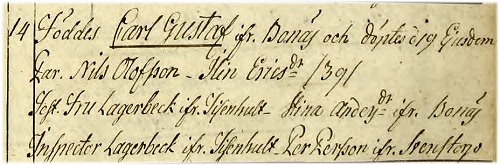 14 Föddes Carl Gustaf ifr. Bonäs och döptes d 19 Ejusdem
Par. Nils Olofsson - Stin Ericsdr /39/
Test. Fru Lagerbeck ifr. Stina Andersdr ifr. Bonäs
Inspector Lagerbeck ifr. Per Persson ifr.